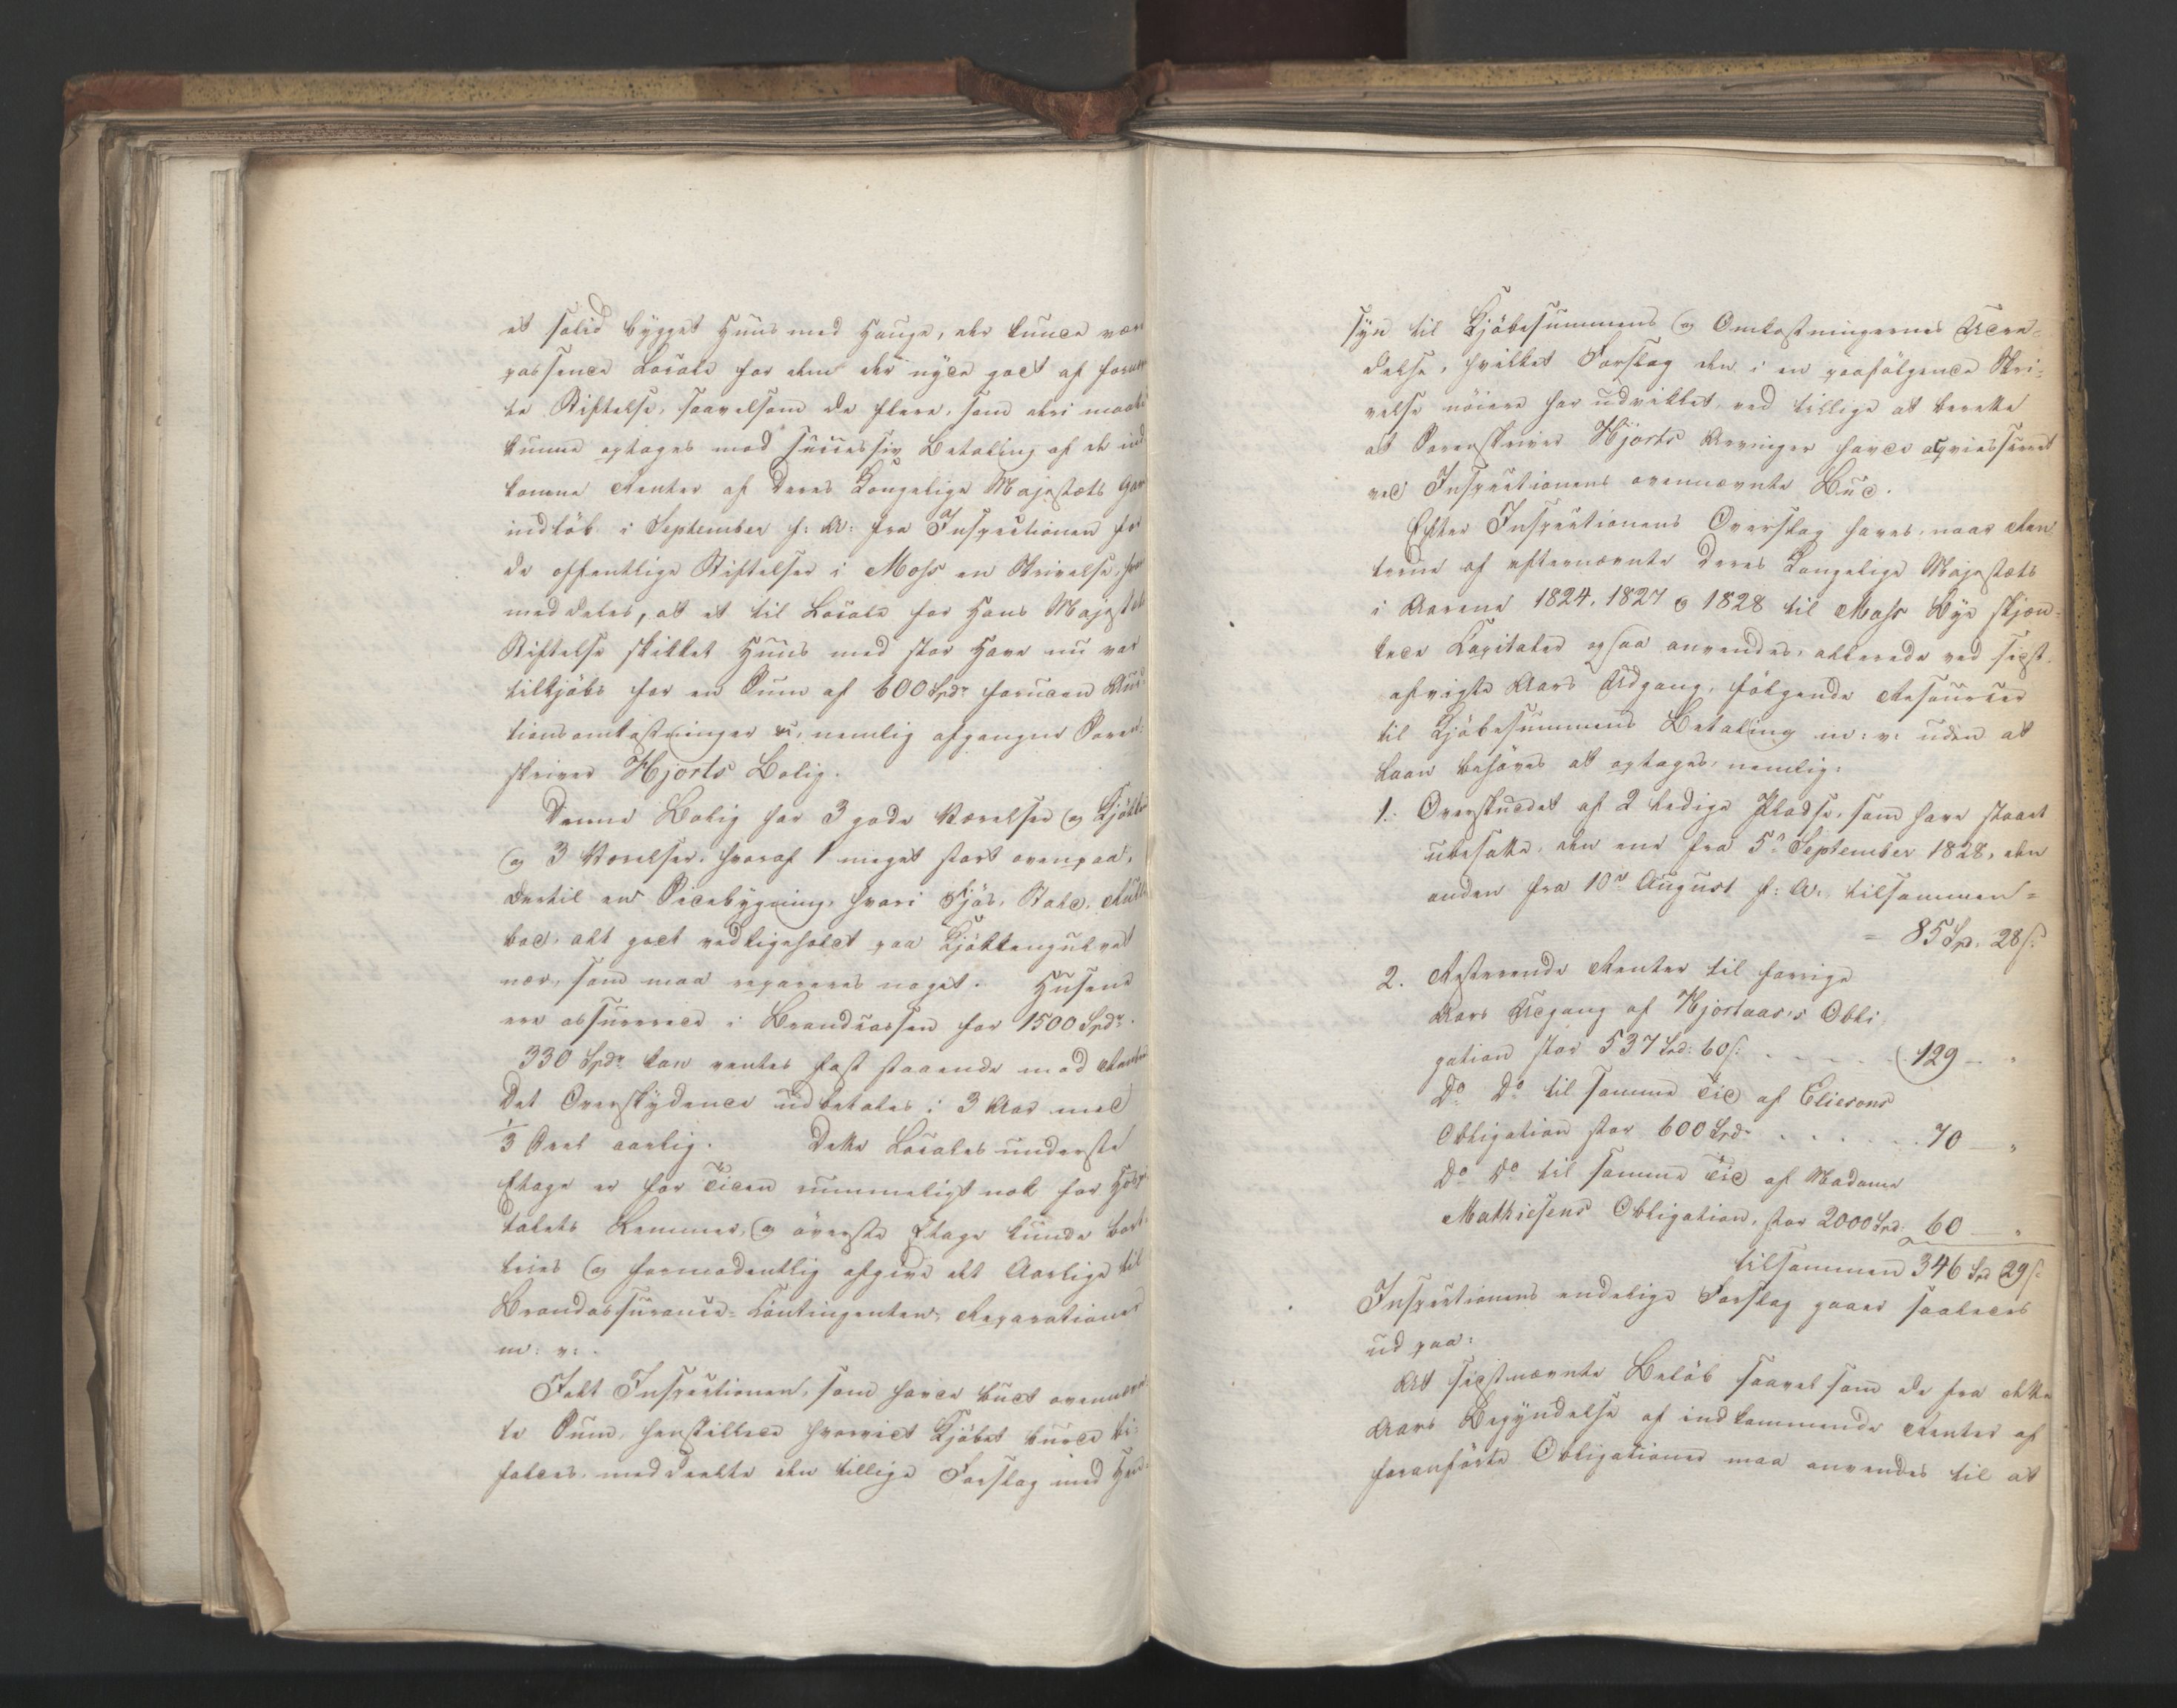 et solid bygget Huus med Hauge, der kunde være
passende Locale for dem der nyde godt af
te Stiftelse, saavelsom de flere, som deri maatte
kunne optages mod successiv Betaling af de ind
komne Renter af Deres Kongelige Majestæts Gave
indløb i September f: A: fra Inspectionen for
de offentlige Stiftelser i Moss en Skrivelse, hvori
meddeles, at et til Locale for Hans Majestæts
Stiftelse skikket Huus med stor Have nu var
tilkjøbs for en Sum af 600 Spdr foruden Auc-
tionsomkostninger &, nemlig afgangne Soren-
skriver Hjorts Bolig.
Denne Bolig har 3 gode Værelser og Kjøkken
og 3 Værelser, hvoraf 1 meget stort ovenpaa,
dertil en Sidebygning, hvori Fjøs, Stald,
bod, alt godt vedligeholdt paa Kjøkkengulvet
nær, som maa repareres noget. Husene
ere assurerede i Brandcassen for 1500 Spdr.
330 Spdr kan ventes fast staaende mod Renter
Det Overskydende udbetales i 3 Aar med
1/3 Deel aarlig. Dette Locales underste
Etage er for Tiden rummeligt nok for Hospi
talets Lemmer, og øverste Etage kunde bort-
leies og formodentlig afgive det Aarlige til
Brandassurance-Contingenten, Reparationer
m: v: .
Idet Inspectionen, som havde budt ovennævn
te Sum, henstillede hvorvidt Kjøbet burde bi-
faldes, meddeelte den tillige Forslag med Hen-
syn til Kjøbesummens og Omkostningernes Udre-
delse, hvilket Forslag den i en paafølgende Skri-
velse nøiere har udviklet, ved tillige at berette
at Sorenskriver Hjorts Arvinger havde acqviesseret
ved Inspectionens ovennævnte Bud.
Efter Inspectionens Overslag haves, naar Ren
terne af efternævnte Deres Kongelige Majestæts
i Aarene 1824, 1827 & 1828 til Moss Bye skjæn-
kede Capitaler ogsaa anvendes, allerede ved sidst-
afvigte Aars Udgang, følgende Resourcer
til Kjøbesummens Betaling m: v: uden at
Laan behøves at optages, nemlig:
1. Overskudet af 2 ledige Pladse, som have staaet
ubesatte, den ene fra 5te September 1828, den
anden fra 10de August f: A:, tilsammen =
= 85 Sp. 28 ß.
2. Resterende Renter til forrige
Aars Udgang af Hjortaas's Obli
gation stor 537 Spd: 60 ß. - - - - - 129 - "
Do Do til samme Tid af Eliesons
Obligation stor 600 Spdr - - - - - 70 - "
Do Do til samme Tid af Madame
Mathiesens Obligation, stor 2000 Spd: 60 - "
tilsammen 346 Spd 29 ß.
Inspectionens endelige Forslag gaaer saaledes
ud paa:
At sidstnævnte Beløb saavelsom de fra dette
Aars Begyndelse af indkommende Renter af
foranførte Obligationer maa anvendes til at